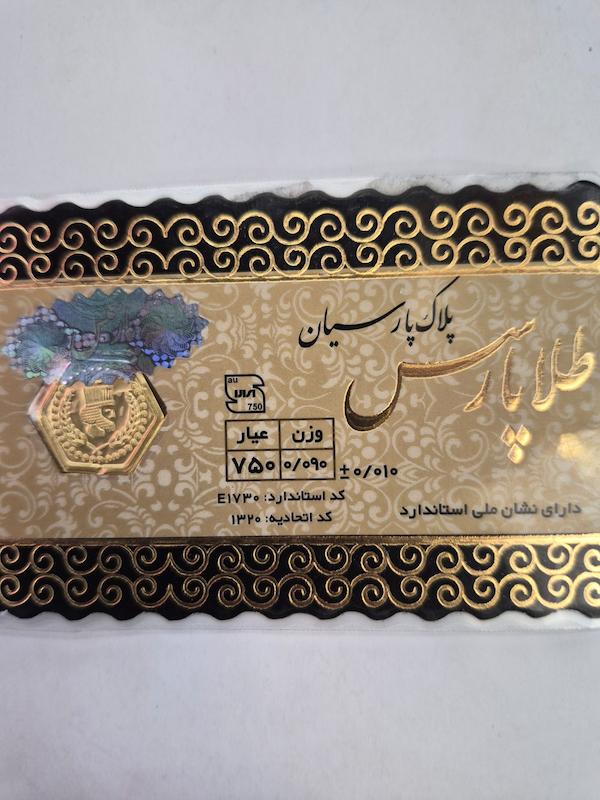 پلاک پارسیان
طلا پارسس
au
750
وزن عیار
۰/۰۹۰ ۷۵۰
±۰/۰۱۰
کد استاندارد: E۱۷۳۰
کد اتحادیه: ۱۳۲۰
دارای نشان ملی استاندارد